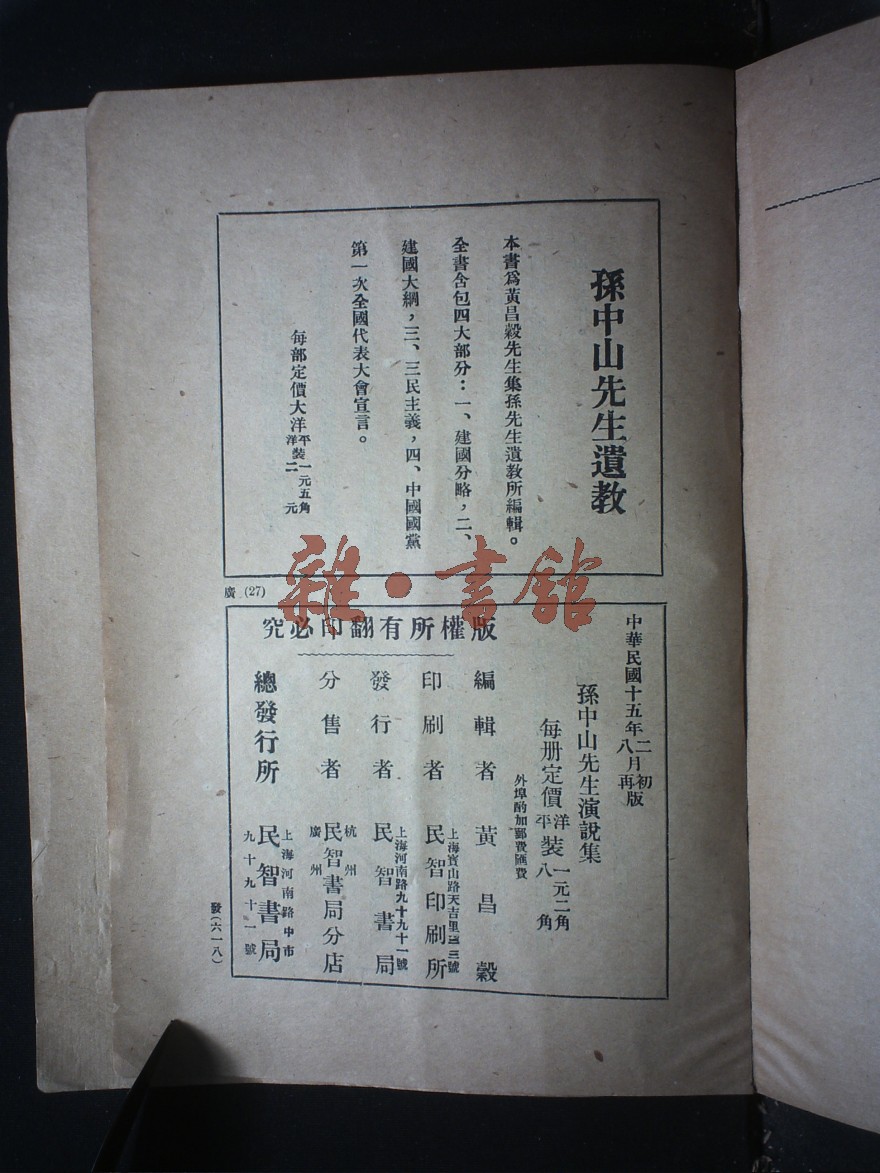 孫中山先生遺教
本書爲黃昌穀先生集孫先生遺教所編輯。
全書含包四大部分：一、建國分略，二、
建國大綱，三、三民主義，四、中國國黨
第一次全國代表大會宣言。
每部定價大洋平裝一元五角
洋裝二元
廣 (27)
雜·書館
中華民國十五年二月初版
八月再版
孫中山先生演說集
每册定價洋裝一元二角
平裝八角
外埠酌加郵費匯費
版權所有翻印必究
編輯者 黃昌穀
上海寶山路天吉里三號
印刷者 民智印刷所
上海河南路九十九十一號
發行者 民智書局
杭州
分售者 民智書局分店
廣州
上海河南路中市
總發行所 民智書局
九十九十一號
發(六一八)